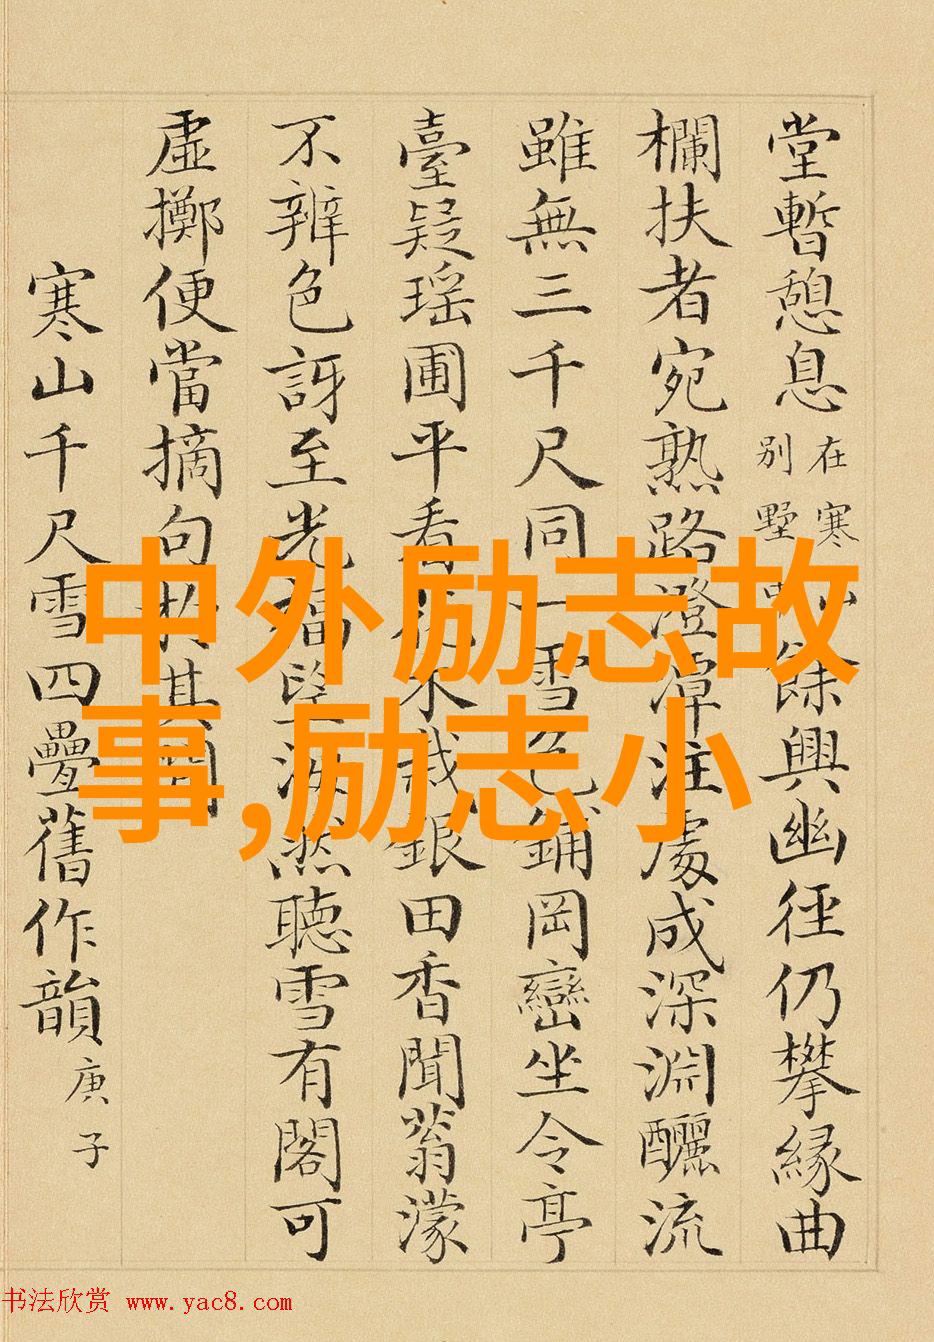 堂暫憩息
在寒山
別墅
餘興幽徑仍攀緣曲
欄扶者宛熟路澄潭注處成深淵釃流
雖無三千尺同一雪色鋪岡巒坐令亭
臺疑瑶圃平看木栽銀田香聞蓊濛
不辨色訝至光福望然聽雪有閣可
虛擲便當摘句於其間
寒山千尺雪四疊舊作韻
庚子
中外励志故
事,励志小
书法欣赏 www.yac8.com